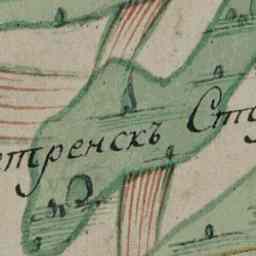 тренскъ Ст